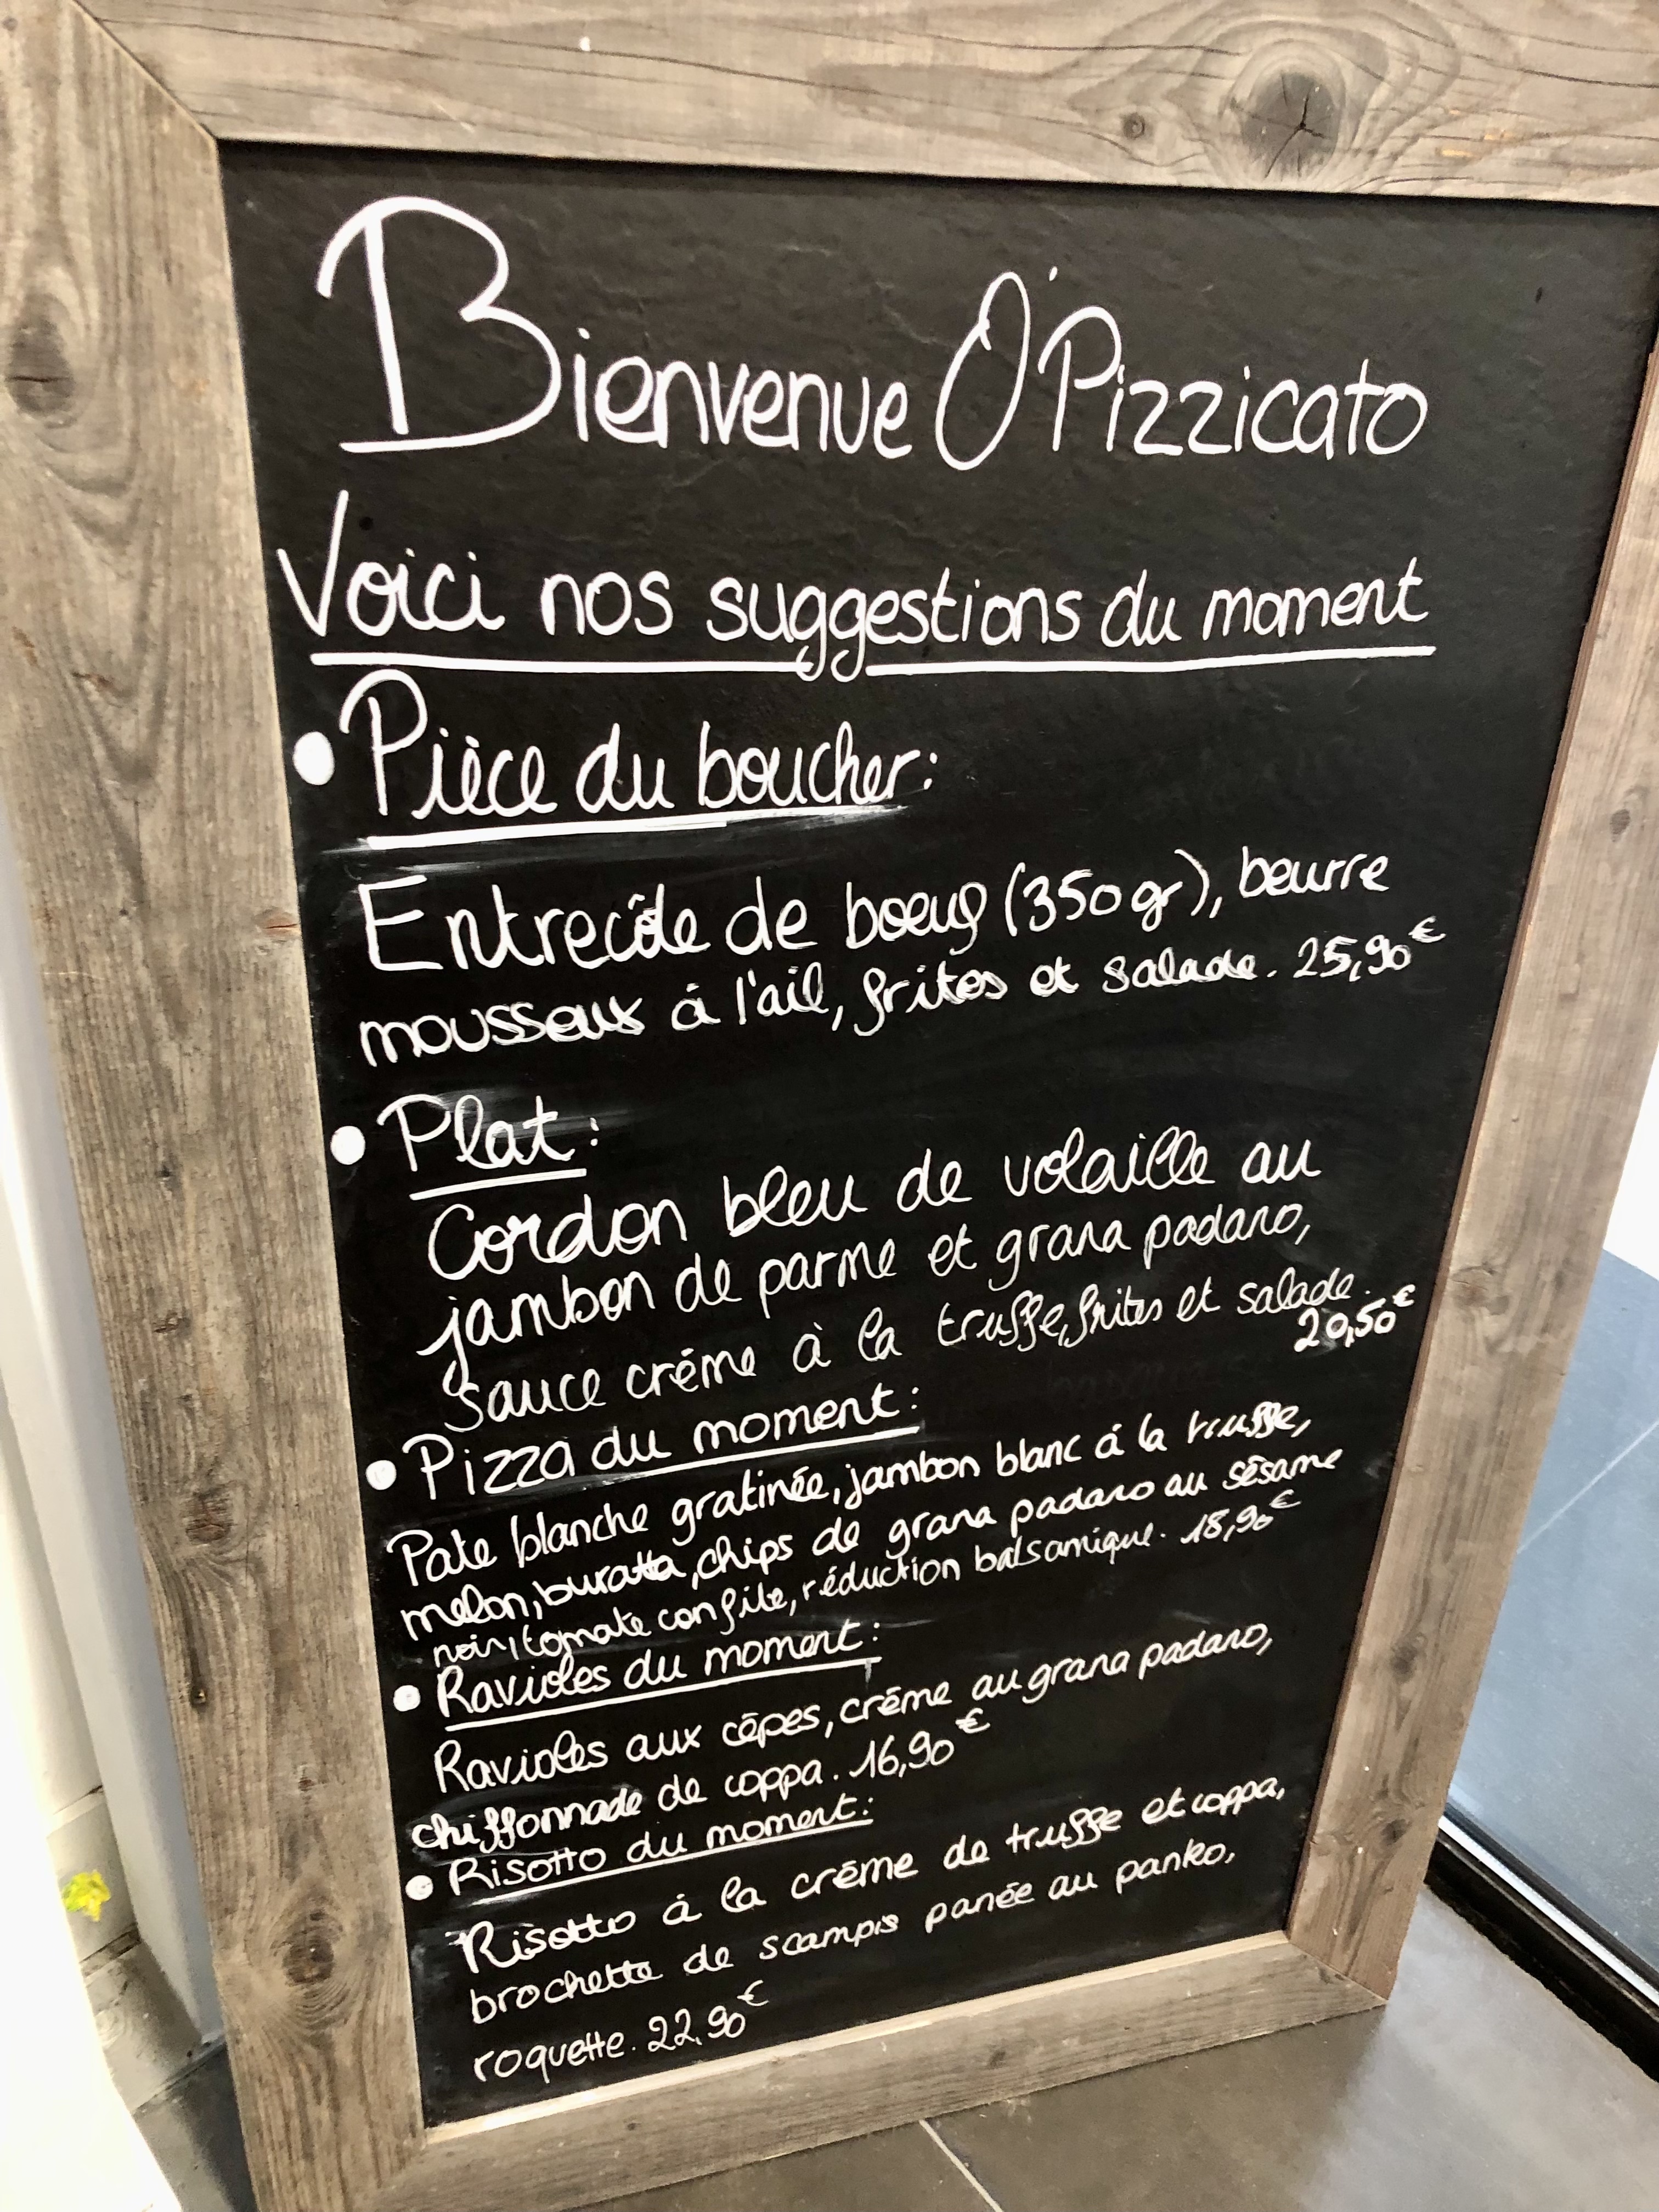 Bienvenue O'Pizzicato
Voici nos suggestions du moment
• Pièce du boucher:
Entrecôte de boeuf (350gr), beurre
mousseux à l'ail, frites et salade. 25,90€
• Plat:
Cordon bleu de volaille au
jambon de parme et grana padano,
sauce crème à la truffe, frites et salade.
20,50€
• Pizza du moment:
Pate blanche gratinée, jambon blanc à la truffe,
melon, buratta, chips de grana padano au sésame
noir, tomate confite, réduction balsamique. 18,90€
• Ravioles du moment:
Ravioles aux cèpes, crème au grana padano,
chiffonnade de coppa. 16,90€
• Risotto du moment:
Risotto à la crème de truffe et coppa,
brochette de scampis panée au panko,
roquette. 22,90€